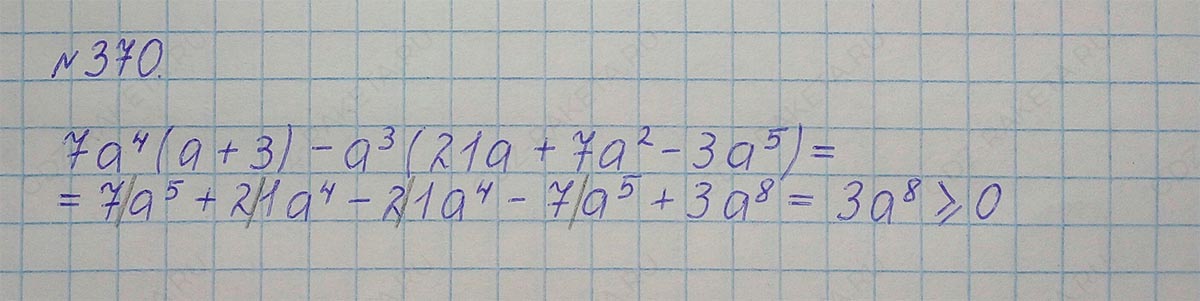 №370.
7a⁴(a + 3) - a³(21a + 7a² - 3a⁵) =
= 7a⁵ + 21a⁴ - 21a⁴ - 7a⁵ + 3a⁸ = 3a⁸ ⩾ 0